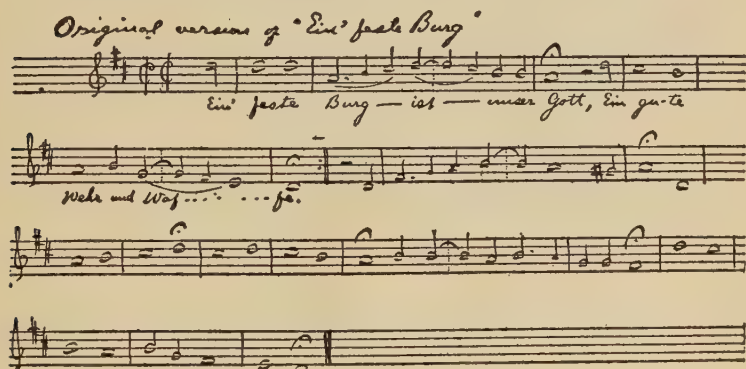 Original version of "Ein' feste Burg"
Ein' feste Burg — ist — unser Gott, Ein gu-te
Wehr und Waf...... ...fe.